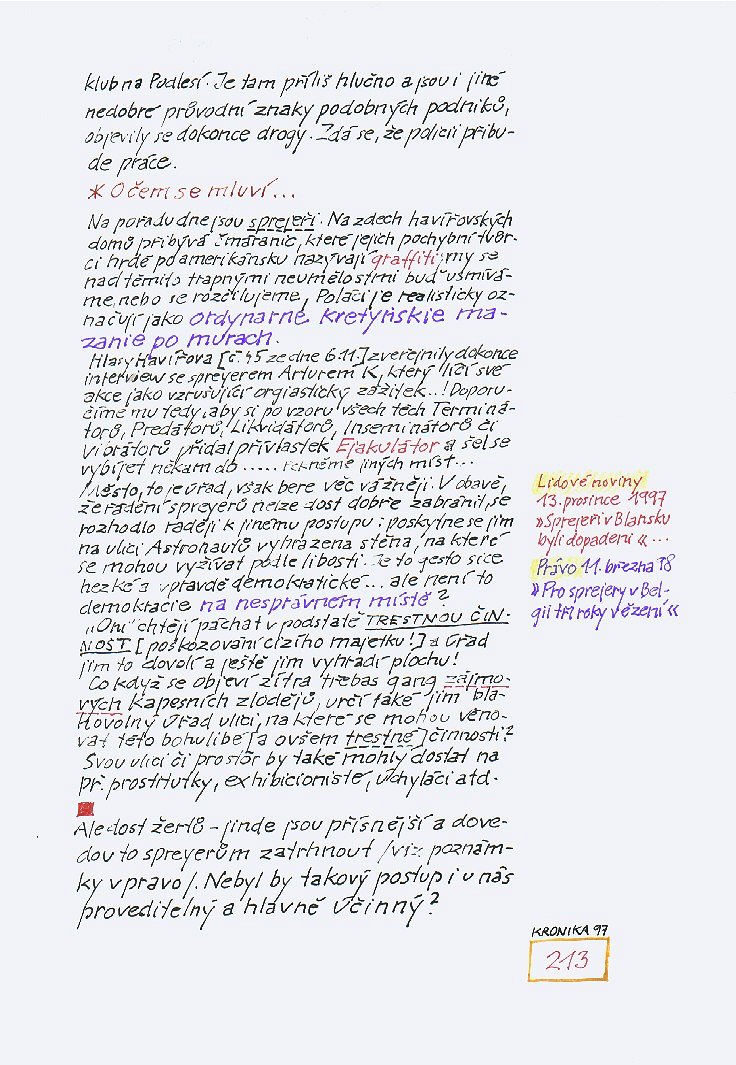 klub na Podlesí. Je tam příliš hlučno a jsou i jiné
nedobré průvodní znaky podobných podniků,
objevily se dokonce drogy. Zdá se, že policii přibu-
de práce.
* O čem se mluví...
Na pořadu dne jsou sprejeři. Na zdech havířovských
domů přibývá čmáranic, které jejich pochybní tvůr-
ci hrdě po amerikánsku nazývají graffiti; my se
nad těmito trapnými neumělostmi buď usmívá-
me, nebo se rozčilujeme, Poláci je realisticky oz-
načují jako ordynarne kretyńskie ma-
zanie po murach.
Hlasy Havířova [č. 45 ze dne 6.11.] zveřejnily dokonce
interview se spreyerem Arturem K., který líčí své
akce jako vzrušující orgiastický zážitek..! Doporu-
číme mu tedy, aby si po vzoru všech těch Terminá-
torů, Predátorů, Likvidátorů, Inseminátorů či
Vibrátorů přidal přívlastek Ejakulátor a šel se
vybíjet někam do ..... řekněme jiných míst...
Město, to je úřad, však bere věc vážněji. V obavě,
že řádění spreyerů nelze dost dobře zabránit, se
rozhodlo raději k jinému postupu: poskytne se jim
na ulici Astronautů vyhrazená stěna, na které
se mohou vyžívat podle libosti. Je to gesto sice
hezké a vpravdě demokratické... ale není to
demokracie na nesprávném místě?
„Oni" chtějí páchat v podstatě TRESTNOU ČIN-
NOST [poškozování cizího majetku!] a úřad
jim to dovolí a ještě jim vyhradí plochu!
Co když se objeví zítra třebas gang zájmo-
vých kapesních zlodějů, určí také jim bla-
hovolný úřad ulici, na které se mohou věno-
vat této bohulibé [a ovšem trestné] činnosti?
Svou ulici či prostor by také mohly dostat na
př. prostitutky, exhibicionisté, úchyláci atd.
Ale dost žertů - jinde jsou přísnější a dove-
dou to spreyerům zatrhnout /viz poznám-
ky vpravo/. Nebyl by takový postup i u nás
proveditelný a hlavně účinný?
Lidové noviny
13. prosince 1997
»Sprejeři v Blansku
byli dopadeni«...
Právo 11. března 98
»Pro sprejery v Bel-
gii tři roky vězení«
KRONIKA 97
213